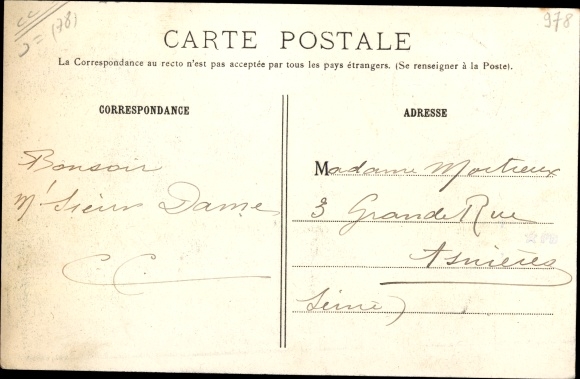 (78)
978
CARTE POSTALE
La Correspondance au recto n'est pas acceptée par tous les pays étrangers. (Se renseigner à la Poste).
CORRESPONDANCE
Bonsoir
M'sieurs Dames
C.C.
ADRESSE
Madame Mortreux
3 Grande Rue
Asnières
Seine)